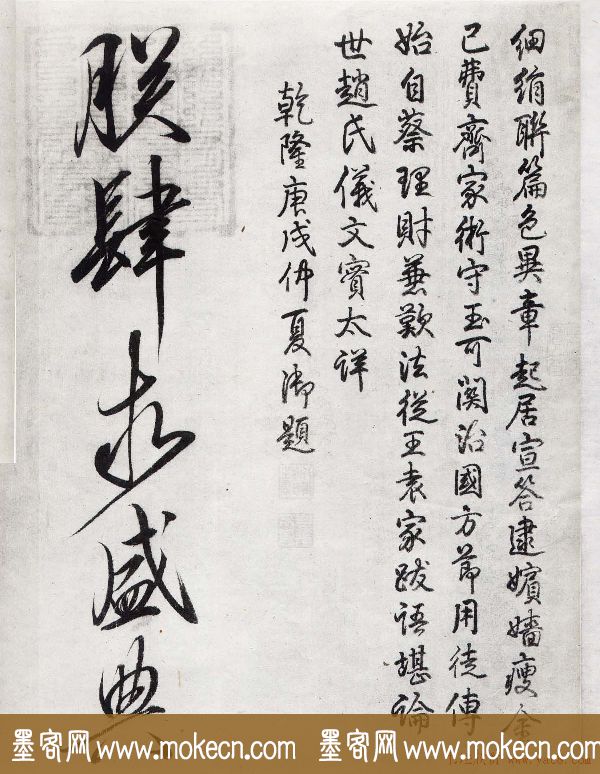 細絹聯篇色異章起居宣答逮嬪嬙瘦金
已費齊家術守玉可関治國方節用徒傳
始自蔡理財兼歎法從王袁家跋語堪論
世趙氏儀文實太詳
乾隆庚戌仲夏御題
朕肆求盛典
墨客网www.mokecn.com 墨客网www.mokecn.com